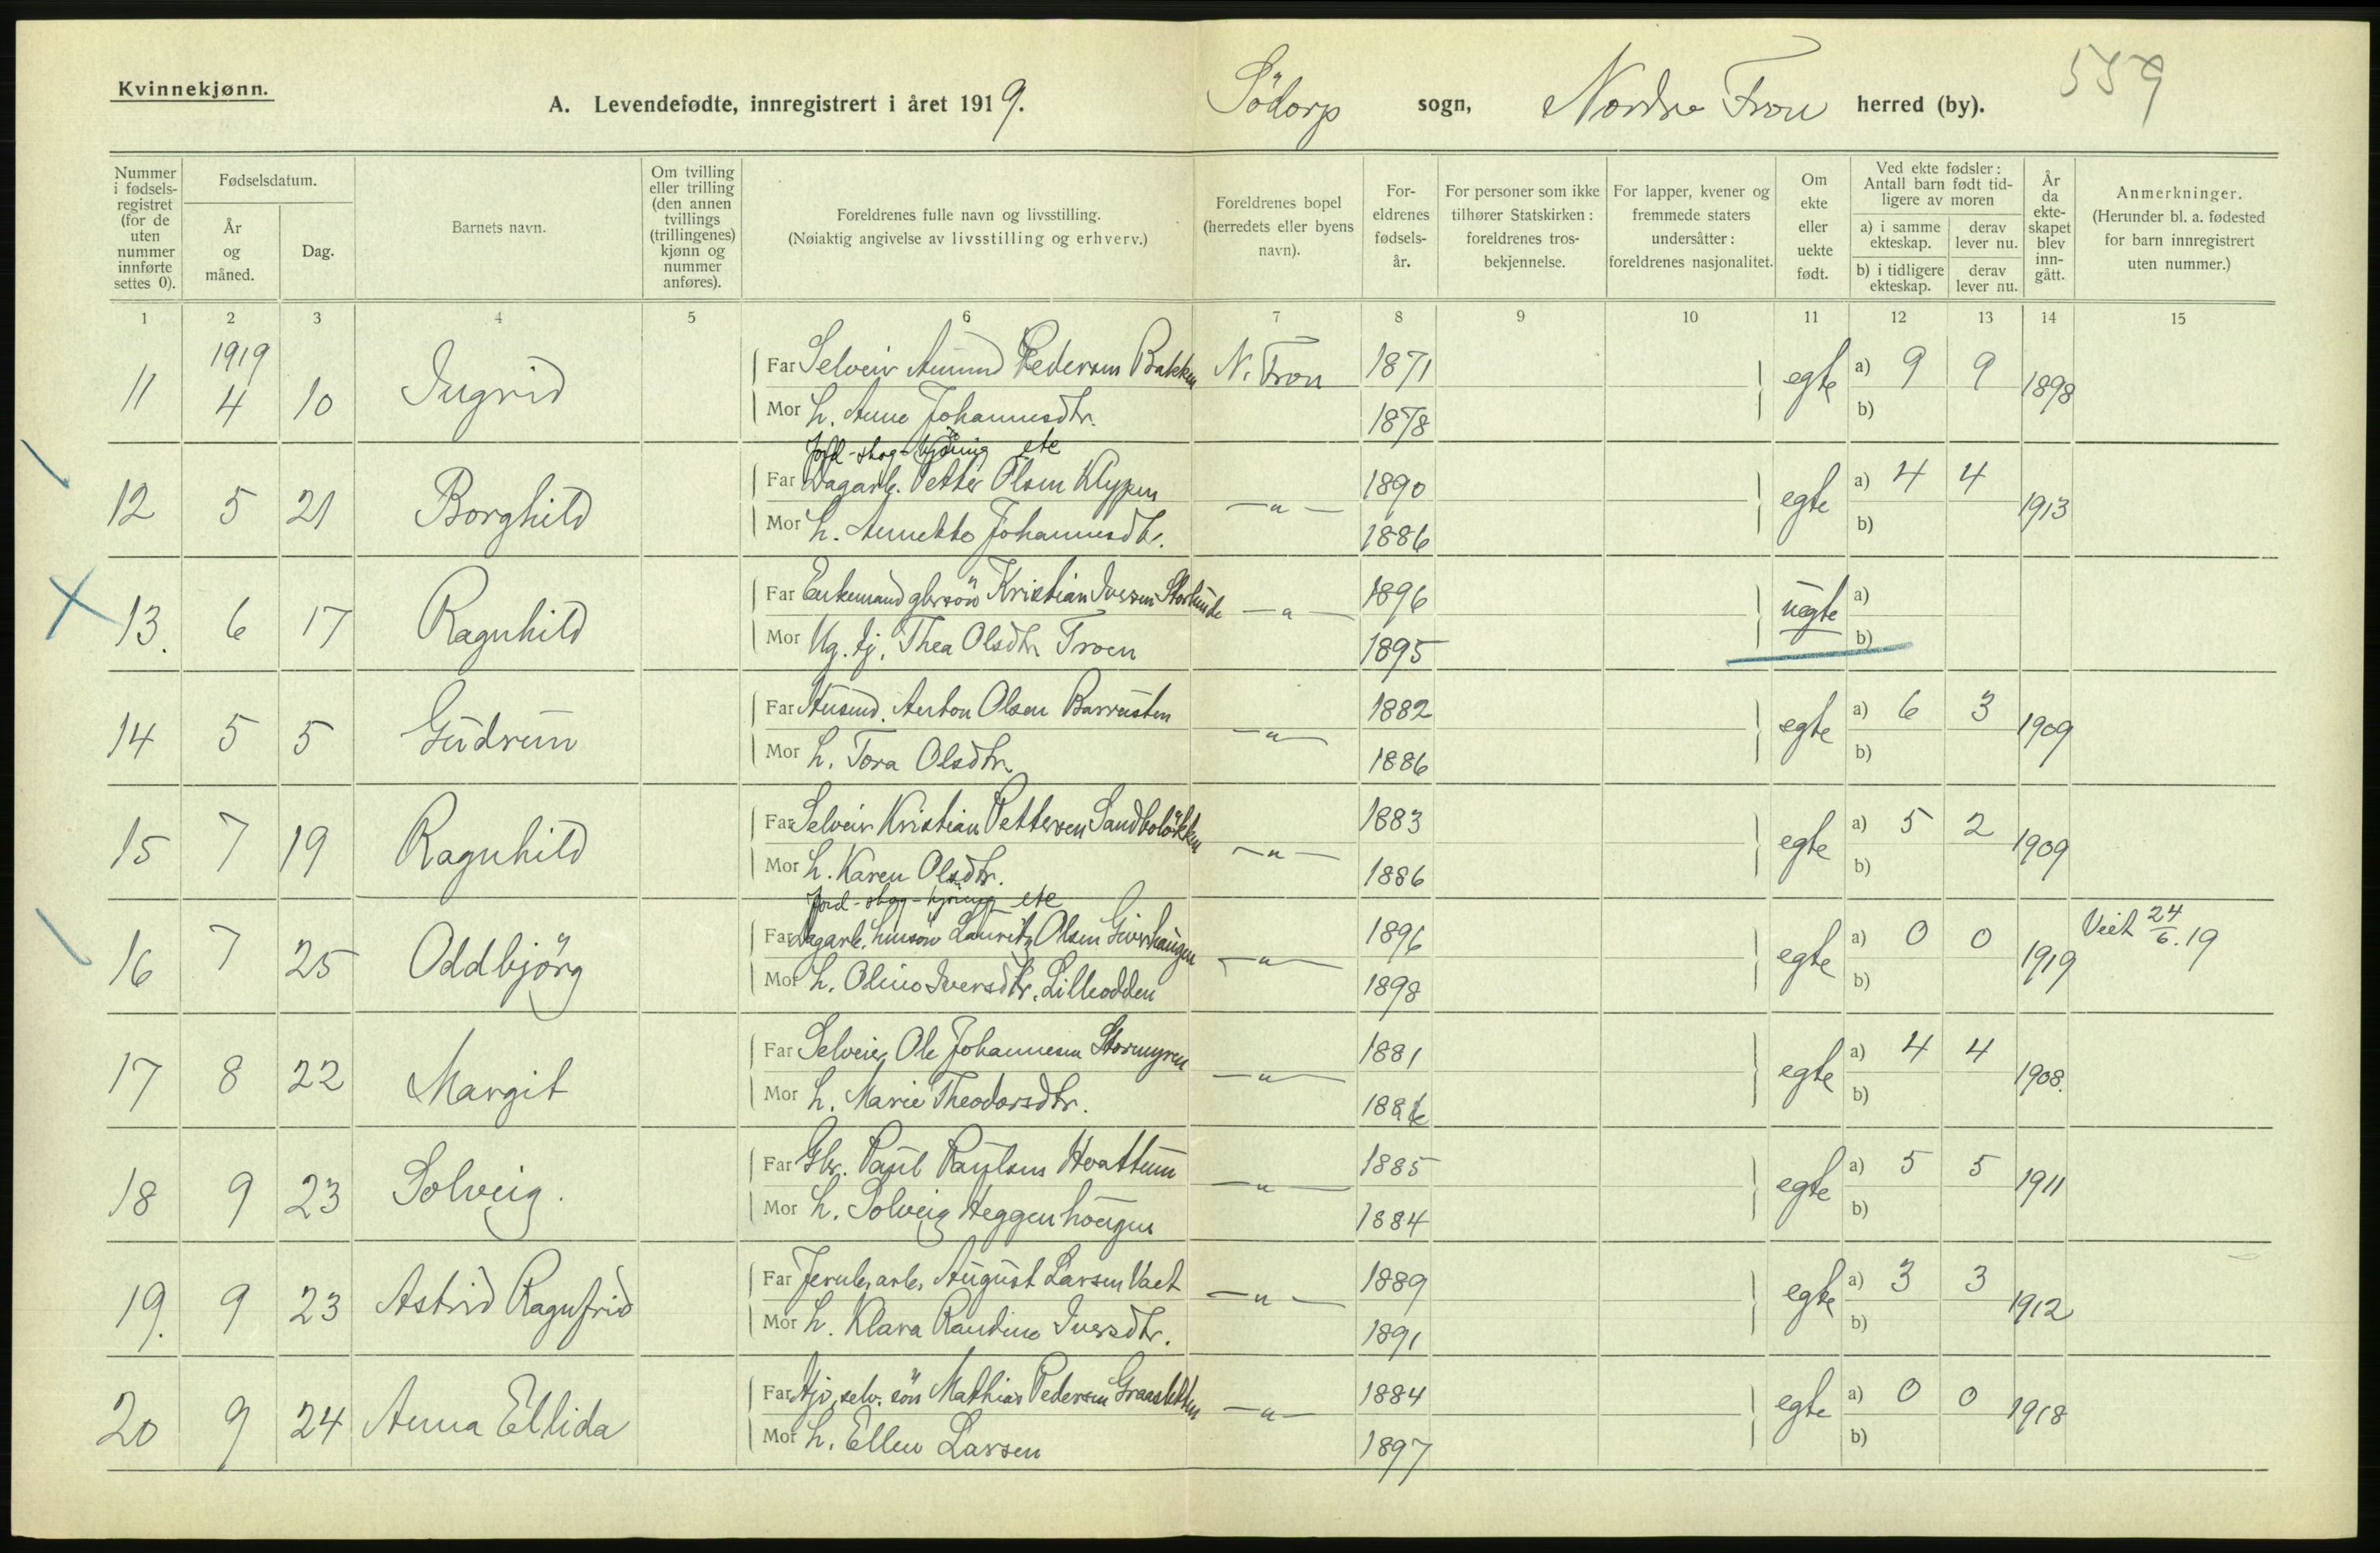 Kvinnekjønn.
A. Levendefødte, innregistrert i året 1919.
Södorp sogn, Nordre Fron herred (by).
559
Nummer i fødsels-registret (for de uten nummer innførte settes 0).
Fødselsdatum.
År og måned.
Dag.
Barnets navn.
Om tvilling eller trilling (den annen tvillings (trillingenes) kjønn og nummer anføres).
Foreldrenes fulle navn og livsstilling.
(Nøiaktig angivelse av livsstilling og erhverv.)
Foreldrenes bopel (herredets eller byens navn).
For-eldrenes fødsels-år.
For personer som ikke tilhører Statskirken: foreldrenes tros-bekjennelse.
For lapper, kvener og fremmede staters undersåtter: foreldrenes nasjonalitet.
Om ekte eller uekte født.
Ved ekte fødsler: Antall barn født tid-ligere av moren
a) i samme ekteskap.
derav lever nu.
b) i tidligere ekteskap.
derav lever nu.
År da ekte-skapet blev inn-gått.
Anmerkninger.
(Herunder bl. a. fødested for barn innregistrert uten nummer.)
1 2 3 4 5 6 7 8 9 10 11 12 13 14 15
1919
11 4 10 Ingrid Far Selveier Amund Pedersen Bakken N. Fron 1871 egte a) 9 9 1898
Mor h. Anne Johannesdtr. 1878 b)
Jord-skog-kjöring etc
12 5 21 Borghild Far Dagarb. Petter Olsen Klypen —"— 1890 egte a) 4 4 1913
Mor h. Annekke Johannesdtr. 1886 b)
13. 6 17 Ragnhild Far Enkemand gbrsön Kristian Iversen —"— 1896 uegte a)
Mor Ug. tj. Thea Olsdtr. Troen 1895 b)
14 5 5 Gudrun Far Husmd. Anton Olsen —"— 1882 egte a) 6 3 1909
Mor h. Tora Olsdtr. 1886 b)
15 7 19 Ragnhild Far Selveier Kristian Pettersen Sandbolökken —"— 1883 egte a) 5 2 1909
Mor h. Karen Olsdtr. 1886 b)
Jord-skog-kjöring etc
16 7 25 Oddbjörg Far Dagarb. Lauritz Olsen —"— 1896 egte a) 0 0 1919 Viet 24/6.19
Mor h. Oline Iversdtr. Lilleodden 1898 b)
17 8 22 Margit Far Selveier Ole Johannesen Stormyren —"— 1881 egte a) 4 4 1908.
Mor h. Marie Theodorsdtr. 1886 b)
18 9 23 Solveig. Far Gbr. Paul Paulsen Hvattum —"— 1885 egte a) 5 5 1911
Mor h. Solveig Heggenhougen 1884 b)
19. 9 23 Astrid Ragnfrid Far Jernb. arb. August Larsen —"— 1889 egte a) 3 3 1912
Mor h. Klara Randine Iversdtr. 1891 b)
20 9 24 Anna Ellida Far selv. sön Mathias Pedersen —"— 1884 egte a) 0 0 1918
Mor h. Ellen Larsen 1897 b)